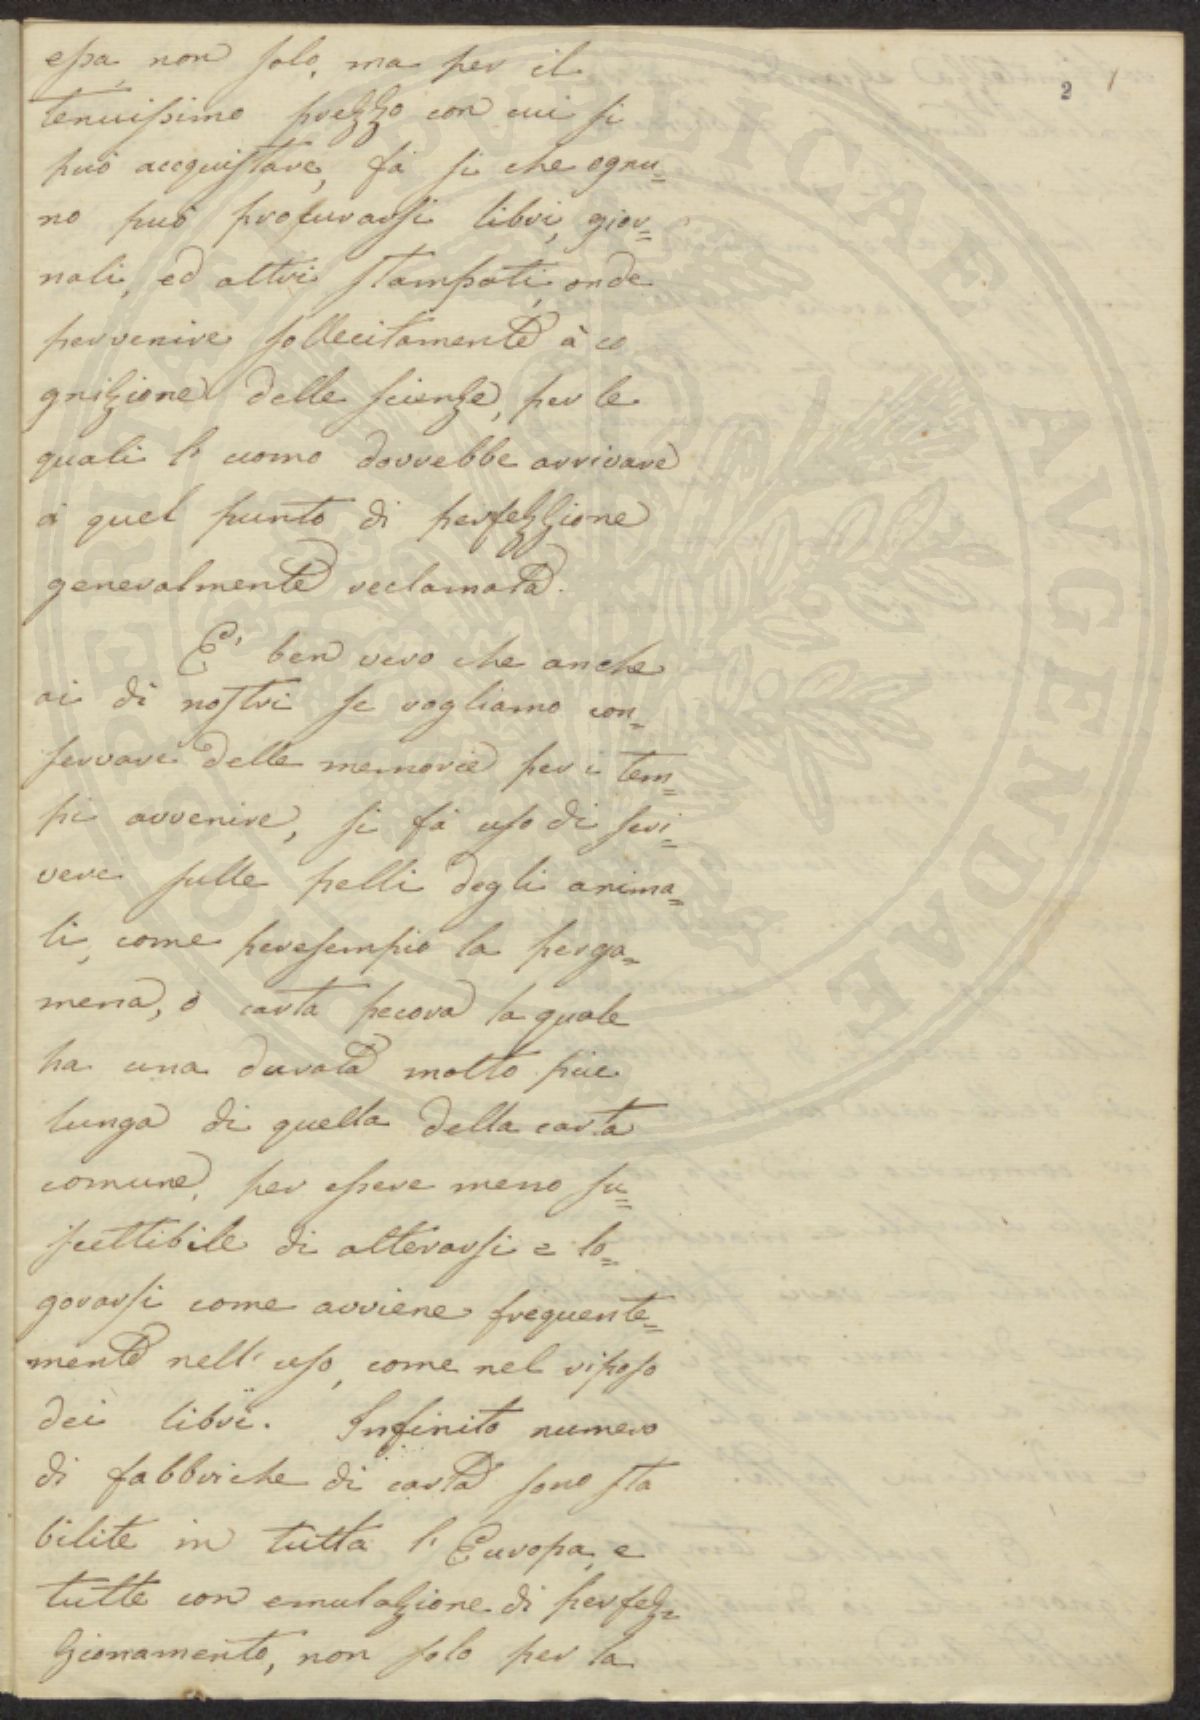 2
essa, non solo, ma per il
tenuissimo prezzo con cui si
può accquistare, fà si che ognu=
no può procurarsi libri, gior=
nali, ed altri stampati, onde
pervenire sollecitamente à co
gnizione delle scienze, per le
quali l'uomo dovrebbe arrivare
à quel punto di perfezzione
generalmente reclamata.
E' ben vero che anche
ai dì nostri se vogliamo con=
servare delle memorie per i tem=
pi avvenire, si fà uso di scri=
vere sulle pelli degli anima=
li, come peresempio la perga=
mena, ò carta pecora la quale
ha una durata molto più
lunga di quella della carta
comune, per essere meno su=
scettibile di alterarsi e lo=
gorarsi come avviene frequente=
mente nell'uso, come nel riposo
dei libri. Infinito numero
di fabbriche di carta sono sta
bilite in tutta l'Europa, e
tutte con emulazione di perfez=
zionamento, non solo per la
PVBLICAE AVGENDAE